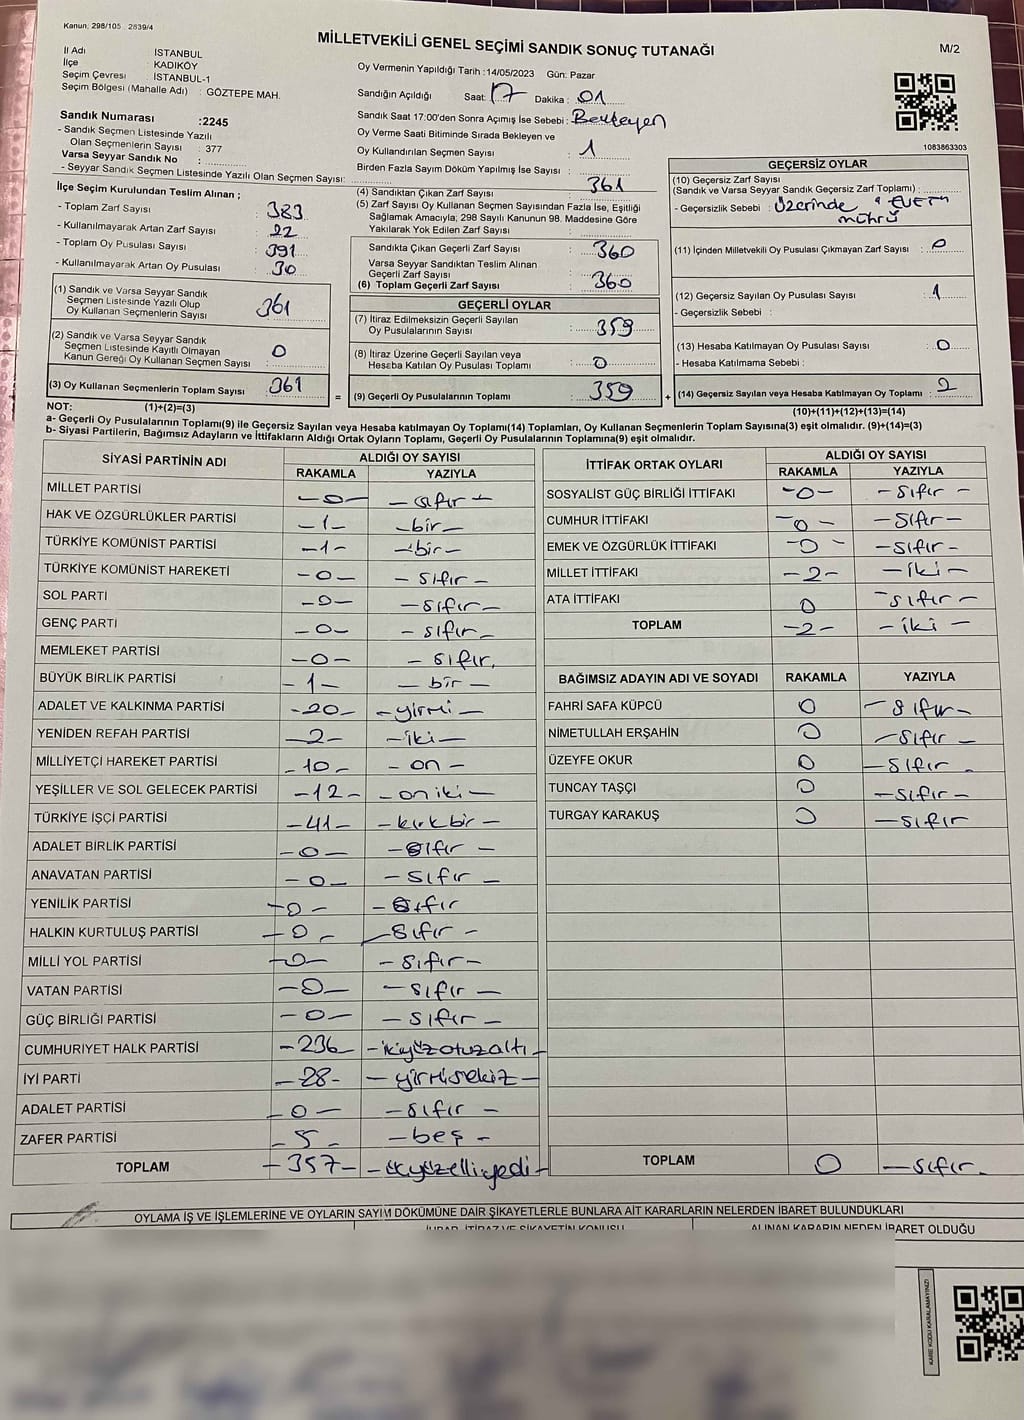 Kanun: 298/105 2839/4
MİLLETVEKİLİ GENEL SEÇİMİ SANDIK SONUÇ TUTANAĞI
M/2
İl Adı : İSTANBUL
İlçe : KADIKÖY
Seçim Çevresi : İSTANBUL-1
Seçim Bölgesi (Mahalle Adı) : GÖZTEPE MAH.
Sandık Numarası :2245
- Sandık Seçmen Listesinde Yazılı
Olan Seçmenlerin Sayısı : 377
Varsa Seyyar Sandık No :
- Seyyar Sandık Seçmen Listesinde Yazılı Olan Seçmen Sayısı:
Oy Vermenin Yapıldığı Tarih :14/05/2023 Gün: Pazar
Sandığın Açıldığı Saat: 17 Dakika : 01
Sandık Saat 17:00'den Sonra Açımış İse Sebebi : Bekleyen
Oy Verme Saati Bitiminde Sırada Bekleyen ve
Oy Kullandırılan Seçmen Sayısı : 1
Birden Fazla Sayım Döküm Yapılmış İse Sayısı :
1083863303
İlçe Seçim Kurulundan Teslim Alınan ;
- Toplam Zarf Sayısı : 383
- Kullanılmayarak Artan Zarf Sayısı : 22
- Toplam Oy Pusulası Sayısı : 391
- Kullanılmayarak Artan Oy Pusulası : 30
(1) Sandık ve Varsa Seyyar Sandık
Seçmen Listesinde Yazılı Olup
Oy Kullanan Seçmenlerin Sayısı : 361
(2) Sandık ve Varsa Seyyar Sandık
Seçmen Listesinde Kayıtlı Olmayan
Kanun Gereği Oy Kullanan Seçmen Sayısı : 0
(3) Oy Kullanan Seçmenlerin Toplam Sayısı : 361
(4) Sandıktan Çıkan Zarf Sayısı : 361
(5) Zarf Sayısı Oy Kullanan Seçmen Sayısından Fazla İse, Eşitliği
Sağlamak Amacıyla; 298 Sayılı Kanunun 98. Maddesine Göre
Yakılarak Yok Edilen Zarf Sayısı :
Sandıkta Çıkan Geçerli Zarf Sayısı : 360
Varsa Seyyar Sandıktan Teslim Alınan
Geçerli Zarf Sayısı
(6) Toplam Geçerli Zarf Sayısı : 360
GEÇERLİ OYLAR
(7) İtiraz Edilmeksizin Geçerli Sayılan
Oy Pusulalarının Sayısı : 359
(8) İtiraz Üzerine Geçerli Sayılan veya
Hesaba Katılan Oy Pusulası Toplamı : 0
= (9) Geçerli Oy Pusulalarının Toplamı : 359
GEÇERSİZ OYLAR
(10) Geçersiz Zarf Sayısı
(Sandık ve Varsa Seyyar Sandık Geçersiz Zarf Toplamı) :
- Geçersizlik Sebebi : Üzerinde "EVET"
mührü
(11) İçinden Milletvekili Oy Pusulası Çıkmayan Zarf Sayısı : 0
(12) Geçersiz Sayılan Oy Pusulası Sayısı : 1
- Geçersizlik Sebebi :
(13) Hesaba Katılmayan Oy Pusulası Sayısı : 0
- Hesaba Katılmama Sebebi :
+ (14) Geçersiz Sayılan veya Hesaba Katılmayan Oy Toplamı : 2
NOT: (1)+(2)=(3)
(10)+(11)+(12)+(13)=(14)
a- Geçerli Oy Pusulalarının Toplamı(9) ile Geçersiz Sayılan veya Hesaba katılmayan Oy Toplamı(14) Toplamları, Oy Kullanan Seçmenlerin Toplam Sayısına(3) eşit olmalıdır. (9)+(14)=(3)
b- Siyasi Partilerin, Bağımsız Adayların ve İttifakların Aldığı Ortak Oyların Toplamı, Geçerli Oy Pusulalarının Toplamına(9) eşit olmalıdır.
SİYASİ PARTİNİN ADI ALDIĞI OY SAYISI
RAKAMLA YAZIYLA
MİLLET PARTİSİ -0- - sıfır -
HAK VE ÖZGÜRLÜKLER PARTİSİ -1- -bir-
TÜRKİYE KOMÜNİST PARTİSİ -1- -bir-
TÜRKİYE KOMÜNİST HAREKETİ -0- - sıfır -
SOL PARTİ -0- -sıfır-
GENÇ PARTİ -0- - sıfır-
MEMLEKET PARTİSİ -0- - sıfır.
BÜYÜK BİRLİK PARTİSİ -1- - bir -
ADALET VE KALKINMA PARTİSİ -20- -yirmi-
YENİDEN REFAH PARTİSİ -2- -iki-
MİLLİYETÇİ HAREKET PARTİSİ -10- - on -
YEŞİLLER VE SOL GELECEK PARTİSİ -12- - oniki -
TÜRKİYE İŞÇİ PARTİSİ -41- -kırkbir-
ADALET BİRLİK PARTİSİ -0- -sıfır -
ANAVATAN PARTİSİ -0- - sıfır -
YENİLİK PARTİSİ -0- - sıfır
HALKIN KURTULUŞ PARTİSİ -0- -sıfır -
MİLLİ YOL PARTİSİ -0- - sıfır-
VATAN PARTİSİ -0- - sıfır -
GÜÇ BİRLİĞİ PARTİSİ -0- - sıfır -
CUMHURİYET HALK PARTİSİ -236- -ikiyüzotuzaltı-
İYİ PARTİ -28- - yirmisekiz-
ADALET PARTİSİ -0- -sıfır -
ZAFER PARTİSİ -5- -beş -
TOPLAM -357- -üçyüzelliyedi-
İTTİFAK ORTAK OYLARI ALDIĞI OY SAYISI
RAKAMLA YAZIYLA
SOSYALİST GÜÇ BİRLİĞİ İTTİFAKI -0- - sıfır -
CUMHUR İTTİFAKI -0- -sıfır-
EMEK VE ÖZGÜRLÜK İTTİFAKI -0- -sıfır-
MİLLET İTTİFAKI -2- -iki-
ATA İTTİFAKI 0 -sıfır-
TOPLAM -2- -iki -
BAĞIMSIZ ADAYIN ADI VE SOYADI RAKAMLA YAZIYLA
FAHRİ SAFA KÜPCÜ 0 -sıfır-
NİMETULLAH ERŞAHİN 0 -sıfır -
ÜZEYFE OKUR 0 -sıfır -
TUNCAY TAŞÇI 0 -sıfır-
TURGAY KARAKUŞ 0 -sıfır
TOPLAM 0 -sıfır-
OYLAMA İŞ VE İŞLEMLERİNE VE OYLARIN SAYIM DÖKÜMÜNE DAİR ŞİKAYETLERLE BUNLARA AİT KARARLARIN NELERDEN İBARET BULUNDUKLARI
İHBAR, İTİRAZ VE ŞİKAYETİN KONUSU ALINAN KARARIN NEDEN İBARET OLDUĞU
KARE KODU KARALAMAYINIZ!